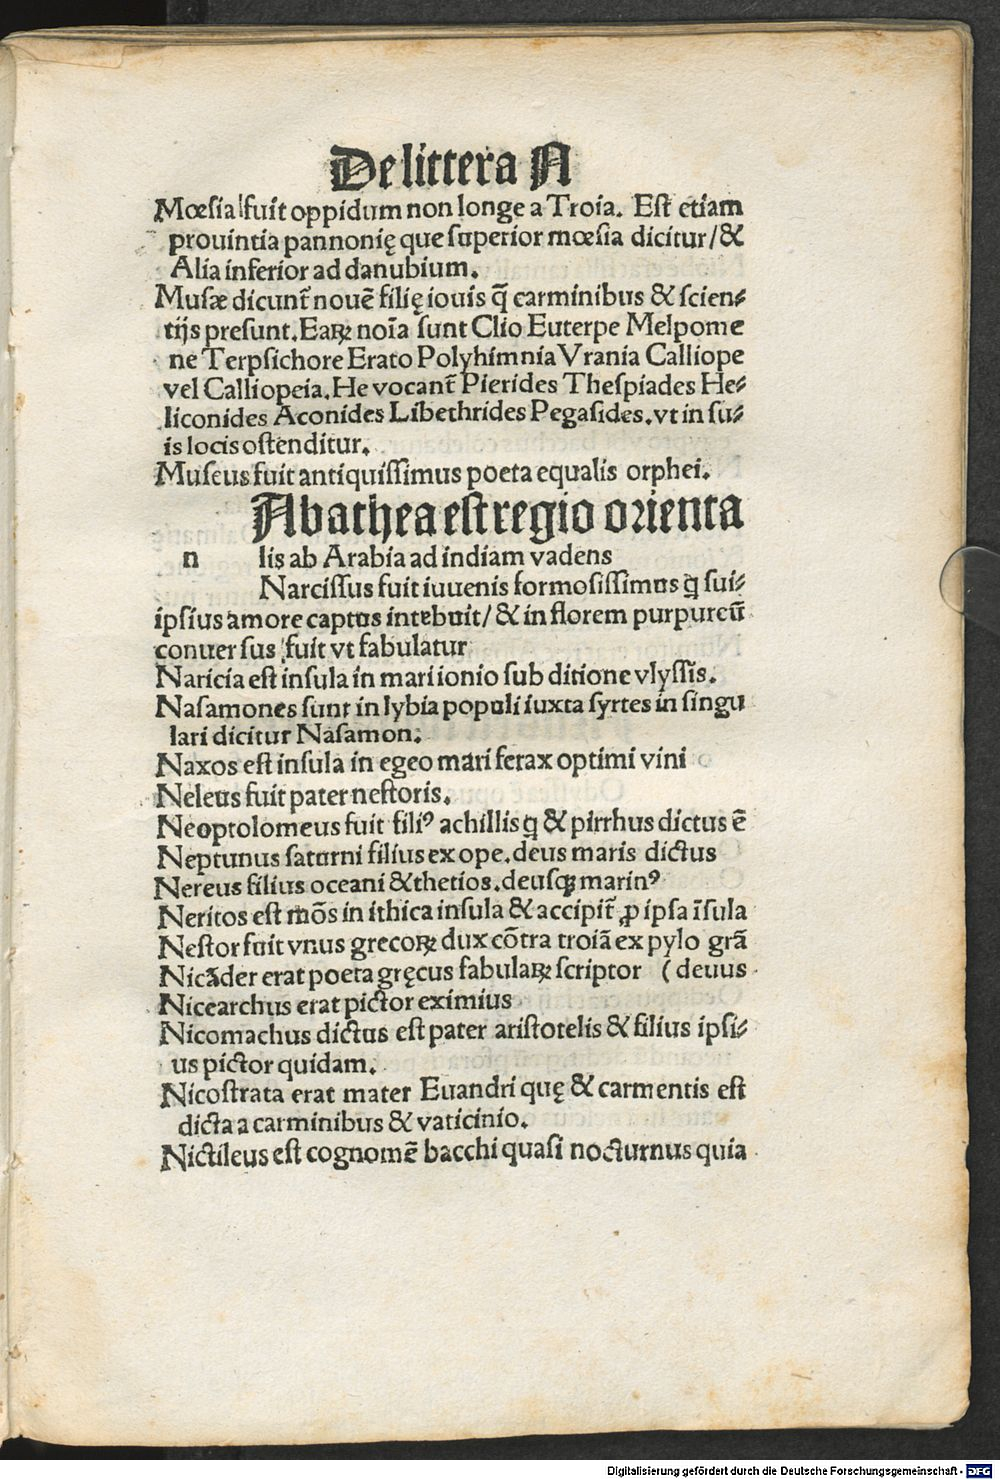 De littera N
Mœsia fuit oppidum non longe a Troia. Est etiam
prouintia pannonię que superior mœsia dicitur/&
Alia inferior ad danubium.
Musæ dicunt̃ nouẽ filię iouis q̃ carminibus & scien⸗
tijs presunt. Eaꝝ noĩa sunt Clio Euterpe Melpome
ne Terpsichore Erato Polyhimnia Vrania Calliope
vel Calliopeia. He vocant̃ Pierides Thespiades He⸗
liconides Aconides Libethrides Pegasides. vt in su⸗
is locis ostenditur.
Museus fuit antiquissimus poeta equalis orphei.
Abathea est regio orienta
n lis ab Arabia ad indiam vadens
Narcissus fuit iuuenis formosissimus q̃ sui⸗
ipsius amore captus intebuit/ & in florem purpureũ
conuersus fuit vt fabulatur
Naricia est insula in mari ionio sub ditione vlyssis.
Nasamones sunt in lybia populi iuxta syrtes in singu
lari dicitur Nasamon.
Naxos est insula in egeo mari ferax optimi vini
Neleus fuit pater nestoris.
Neoptolomeus fuit filiꝰ achillis q̃ & pirrhus dictus ẽ
Neptunus saturni filius ex ope. deus maris dictus
Nereus filius oceani & thetios. deusqꝫ marinꝰ
Neritos est mõs in ithica insula & accipit̃ ꝓ ipsa ĩsula
Nestor fuit vnus grecoꝝ dux cõtra troiã ex pylo grã
Nicãder erat poeta gręcus fabulaꝝ scriptor (deuus
Nicearchus erat pictor eximius
Nicomachus dictus est pater aristotelis & filius ipsi⸗
us pictor quidam.
Nicostrata erat mater Euandri quę & carmentis est
dicta a carminibus & vaticinio.
Nictileus est cognomẽ bacchi quasi nocturnus quia
Digitalisierung gefördert durch die Deutsche Forschungsgemeinschaft - DFG